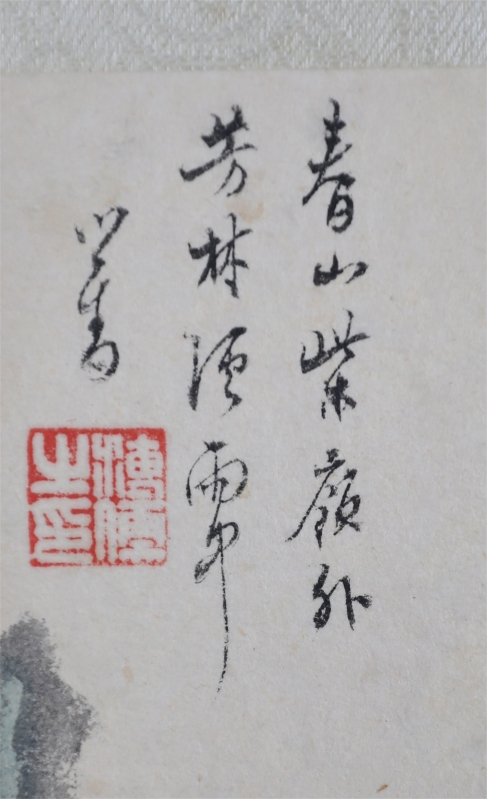 春山紫嶺外
芳林隱雨中
心畬
溥儒
之印